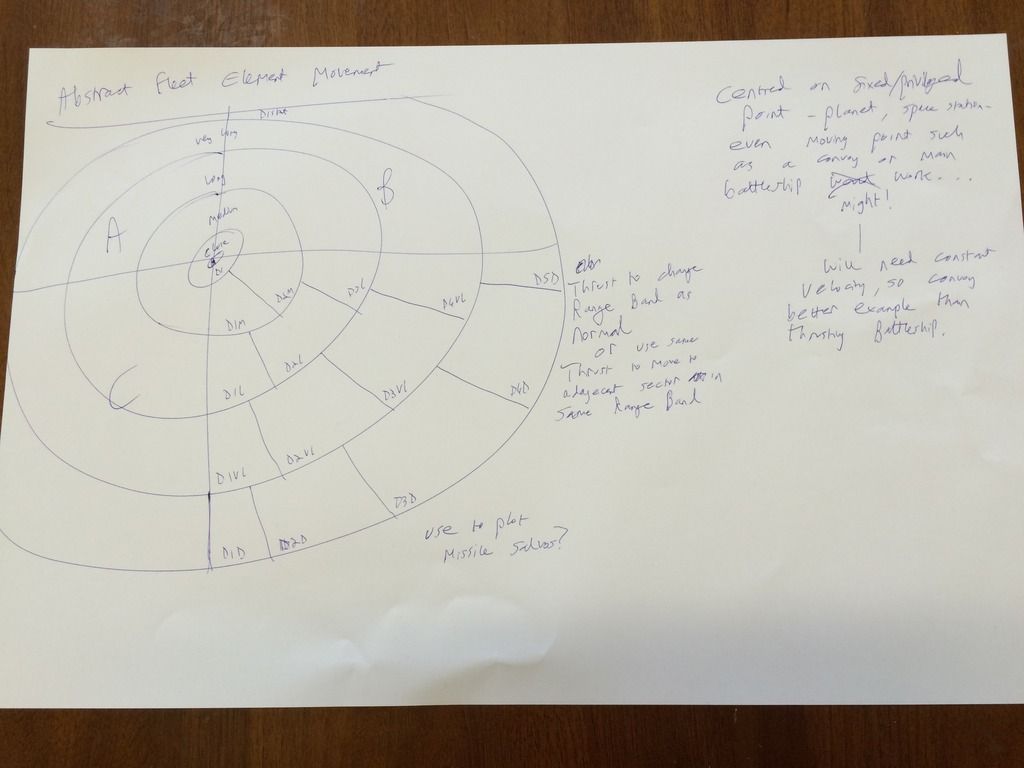 Abstract Fleet Element Movement
Distant
Very Long
Long
Medium
Close
A
B
C
D1M
D2M
D1L
D2L
D3L
D1VL
D2VL
D3VL
D4VL
D1D
D2D
D3D
D4D
D5D
Thrust to change
Range Band as
Normal
or use same
Thrust to move to
adajecent sector in
same Range Band
use to plot
Missile Salvos?
Centred on fixed/priviliged
point - planet, space station -
even moving point such
as a convoy or main
battleship work...
might!
Will need constant
velocity, so convoy
better example than
thrusting Battleship.